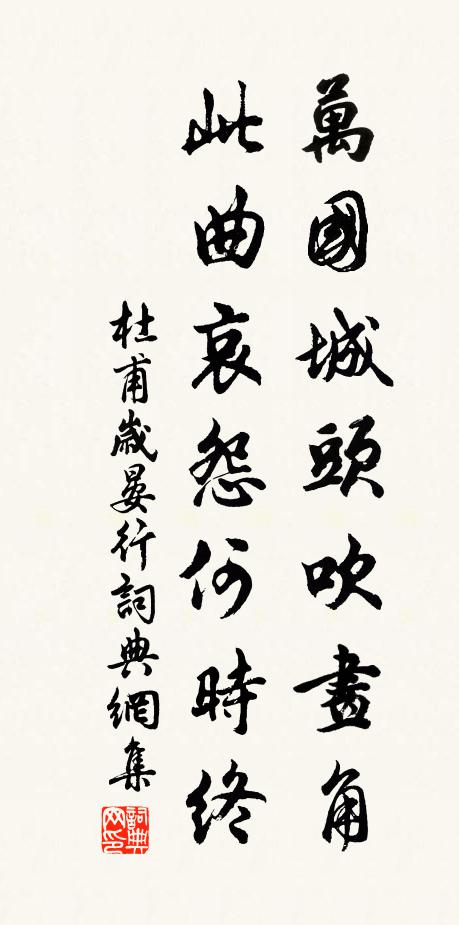 萬國城頭吹畫角
此曲哀怨何時終
杜甫歲晏行詞典網集
詞典
网印